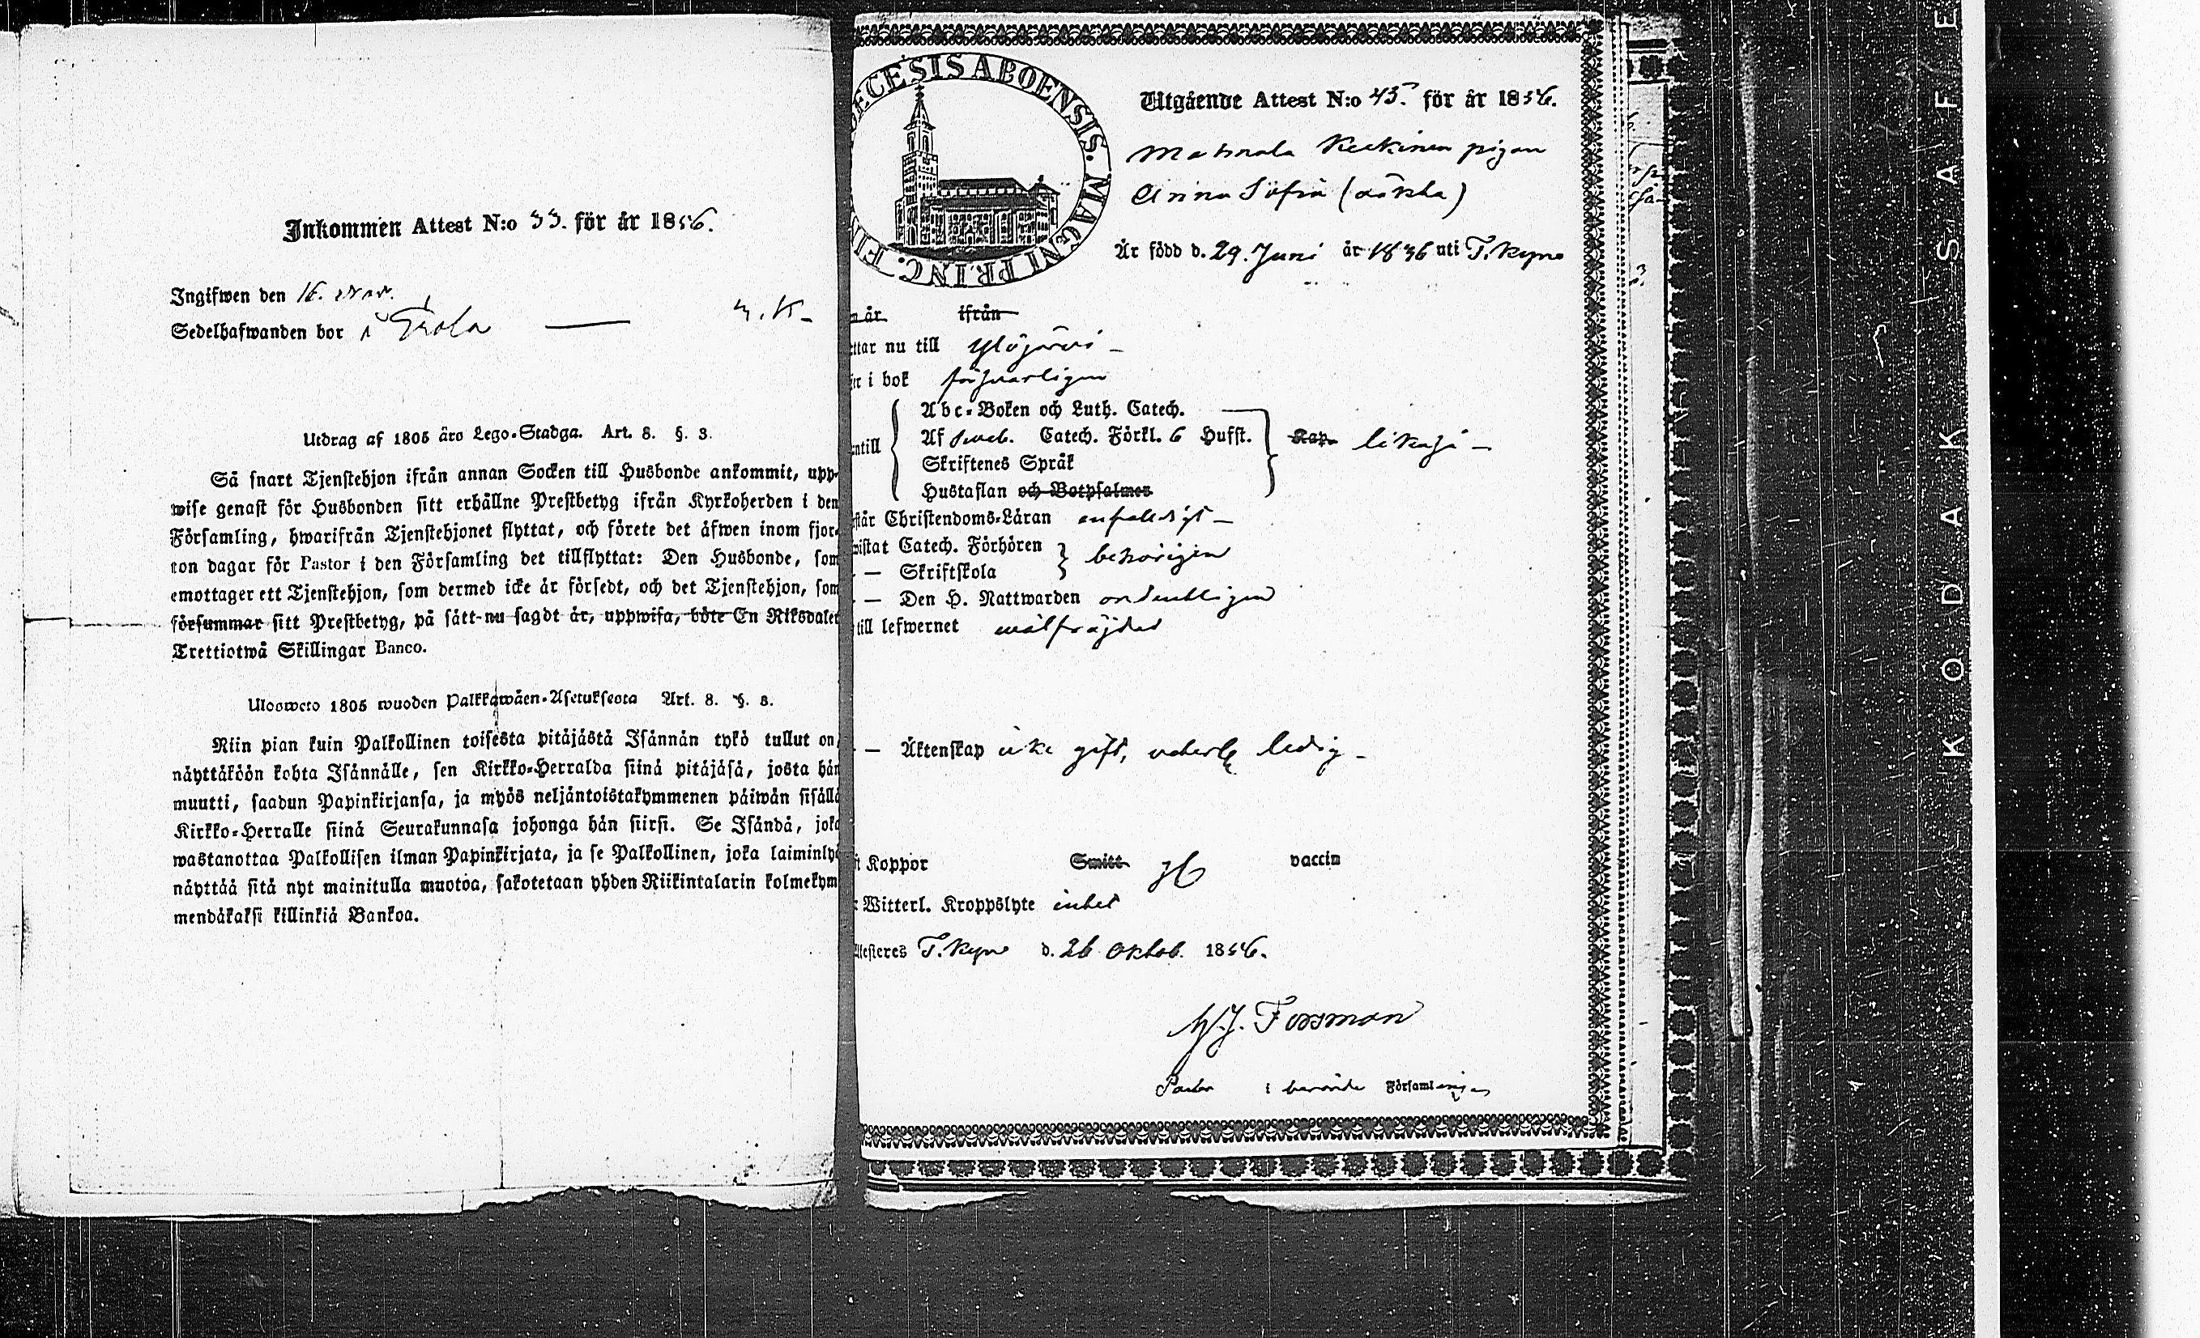 Inkommen Attest N:o 33. för år 1856.
Ingifwen den 16. Nov.
Sedelhafwanden bor i
Utdrag af 1805 års Lego-Stadga. Art. 8. §. 3.
Så snart Tjenstehjon ifrån annan Socken till Husbonde ankommit, upp-
wise genast för Husbonden sitt erhållne Prestbetyg ifrån Kyrkoherden i den
Församling, hwarifrån Tjenstehjonet flyttat, och förete det äfwen inom fjor-
ton dagar för Pastor i den Församling det tillflyttat: Den Husbonde, som
emottager ett Tjenstehjon, som dermed icke är försedt, och det Tjenstehjon, som
försummar sitt Prestbetyg, på sätt nu sagdt är, uppwisa, böte En Riksdaler
Trettiotwå Skillingar Banco.
Ulosweto 1805 wuoden Palkkawäen-Asetuksesta Art. 8. §. 3.
Niin pian kuin Palkollinen toisesta pitäjästä Isännän tykö tullut on,
näyttäköön kohta Isännälle, sen Kirkko-Herralda siinä pitäjäsä, josta hän
muutti, saadun Papinkirjansa, ja myös neljäntoistakymmenen päiwän sisällä
Kirkko-Herralle siinä Seurakunnasa johonga hän siirsi. Se Isändä, joka
wastanottaa Palkollisen ilman Papinkirjata, ja se Palkollinen, joka laiminlyö
näyttää sitä nyt mainitulla muotoa, sakotetaan yhden Riikintalarin kolmekym
mendäkaksi killinkiä Bankoa.
ECESIS ABOENSIS. MAGNI PRINC. FIN
Utgående Attest N:o 45. för år 1856.
pigan
Anna Sofia
Är född d. 29. Juni år 1836 uti T. Kyro
n år ifrån
ttar nu till Ylöjärvi –
er i bok försvarligen
ntill
Abc-Boken och Luth. Catech.
Af Sweb. Catech. Förkl. 6 Husft.
Skriftenes Språk
Hustaflan och Botpsalmer
Kap. likaså –
står Christendoms-Läran enfaldigt –
wistat Catech. Förhören
– Skriftskola
behörigen
– Den H. Nattwarden ordentligen
till lefwernet wälfräjdad
– Äktenskap icke gift, ledig –
ft Koppor Smitt vaccin
r Witterl. Kroppslyte intet
ttesteres T. Kyro d. 26 Oktob. 1856.
Forsman
Pastor i berörde Församlingen
KODAK SAFE